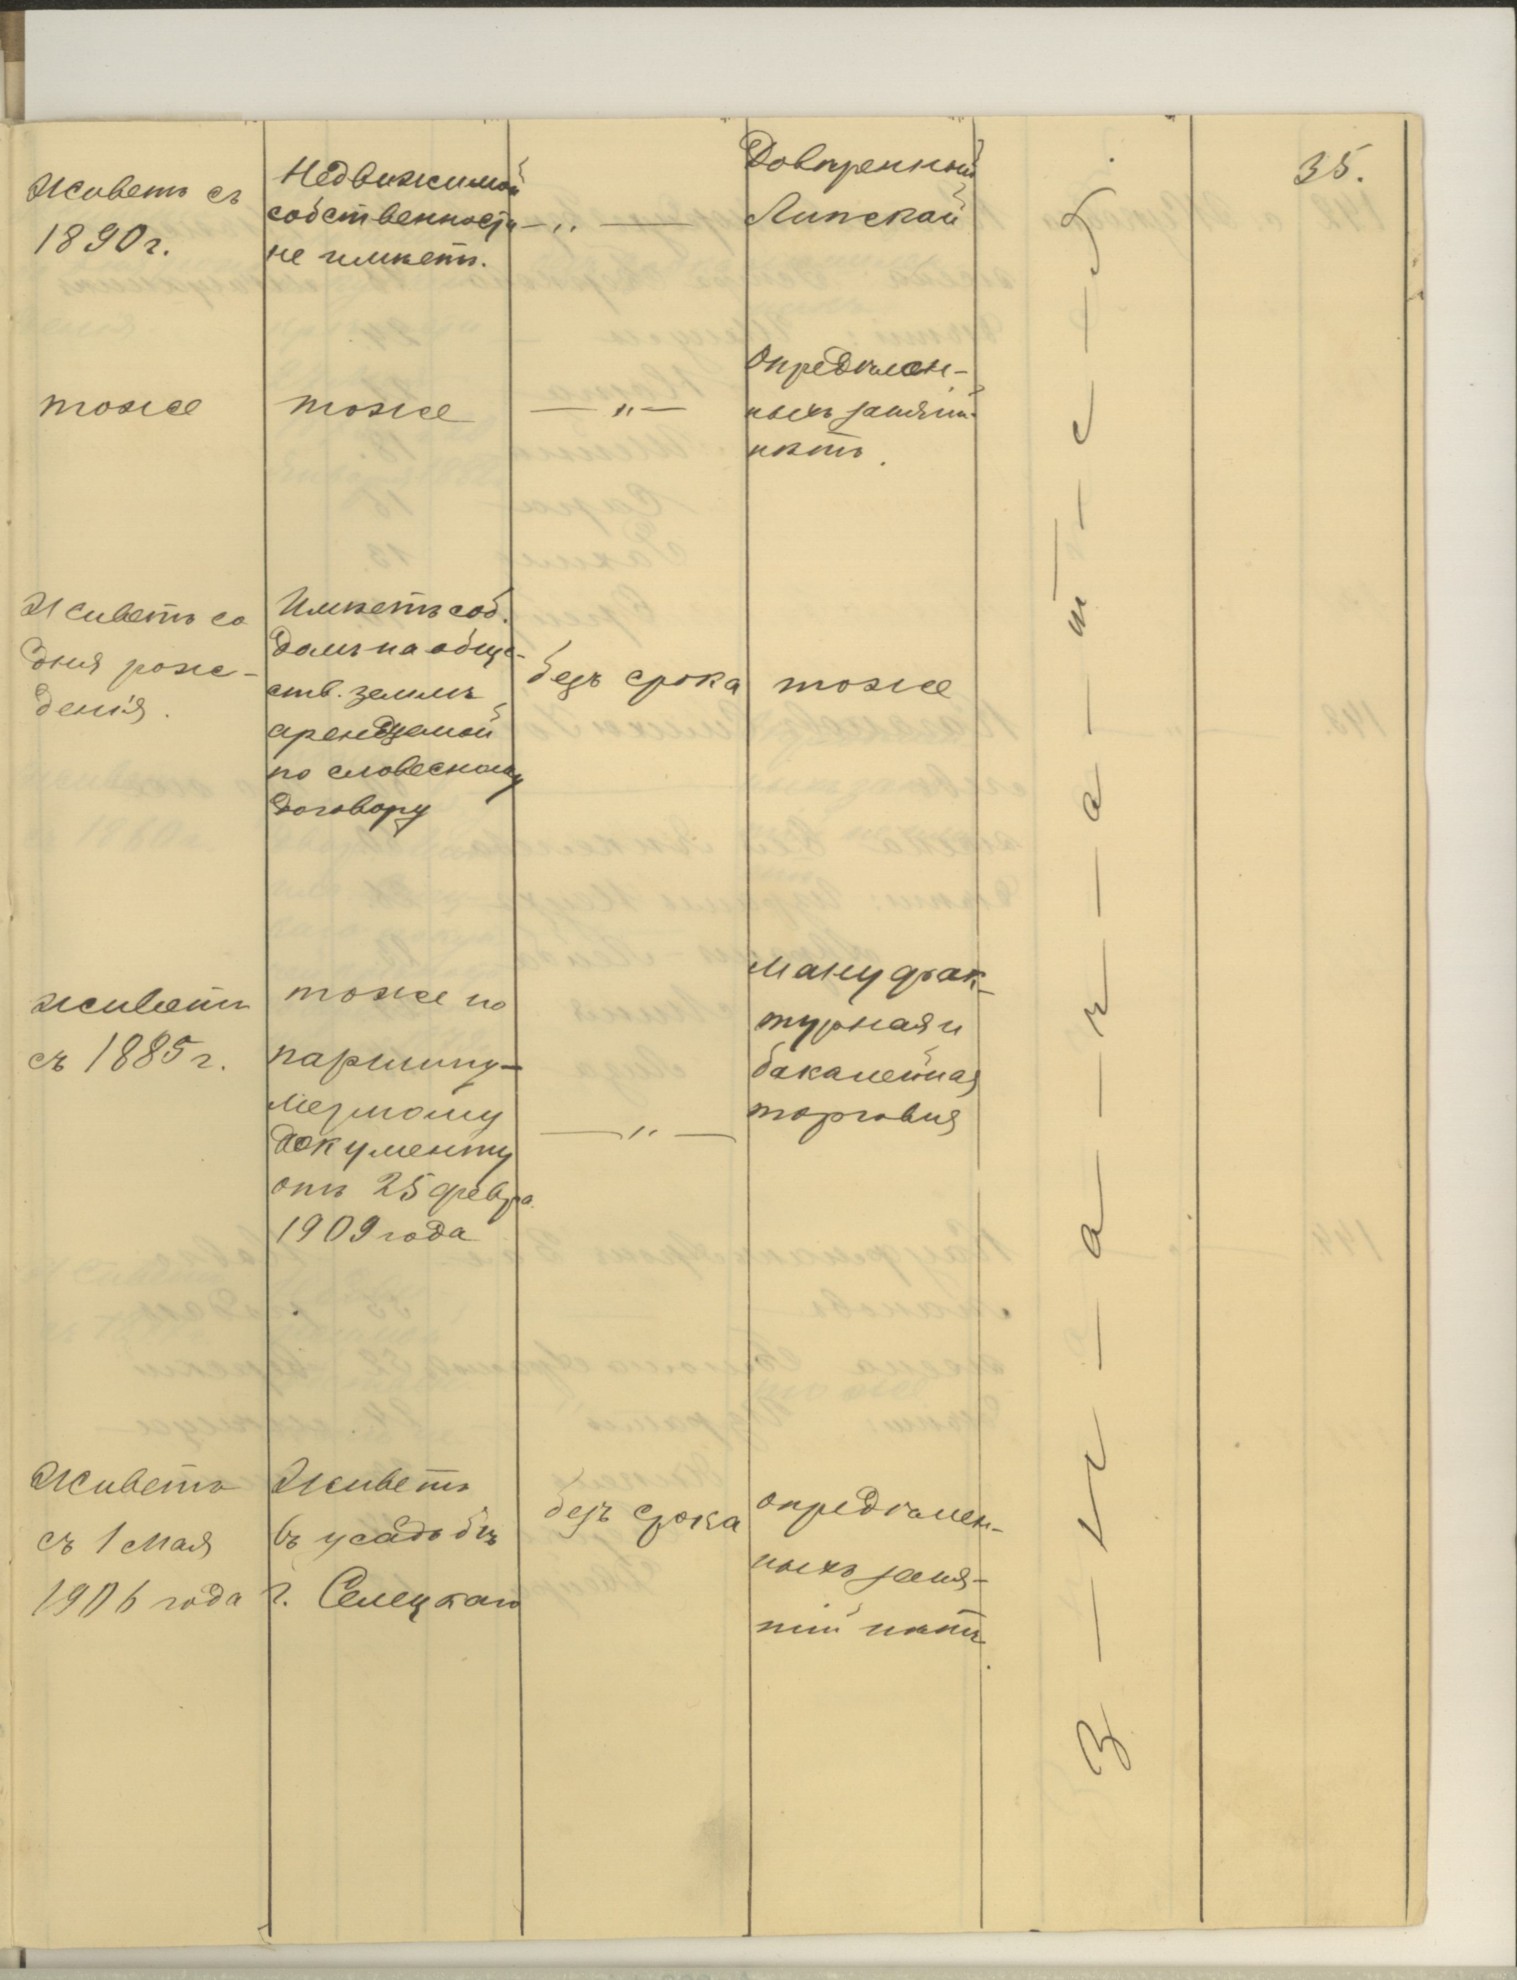 35.
Живетъ съ
1890 г.
Недвижимой
собственности
не имѣетъ.
— „ —
Довѣренный
Липской
тоже
тоже
— „ —
Опредѣлен-
ныхъ занятій
нѣтъ.
Живетъ со
дня рож-
денія.
Имѣетъ соб.
домъ на общес-
ств. землѣ
арендуемой
по словесному
договору
безъ срока
тоже
живетъ
съ 1885 г.
тоже по
документу
отъ 25 февра.
1909 года
— „ —
Мануфак-
турная и
бакалейная
торговля
Живетъ
съ 1 мая
1906 года
Живетъ
въ усадьбѣ
г. Селецкаго
безъ срока
опредѣлен-
ныхъ заня-
тій нѣтъ.